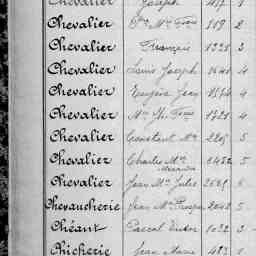 Chevalier Joseph 417 1
Chevalier Vve Mie Fse 119 2
Chevalier François 1221 3
Chevalier Louis Joseph 1641 4
Chevalier Eugène Jean 1574 4
Chevalier Mie 1721 4
Chevalier Constant Mie 2205 5
Chevalier Charles Mie 2452 5
Chevalier Jean Mie Jules 2569 6
Chevaucherie Jean Mie Prosper 2042 5
Chéant Pascal 1032 3
Chicherie Jean Marie 483 1